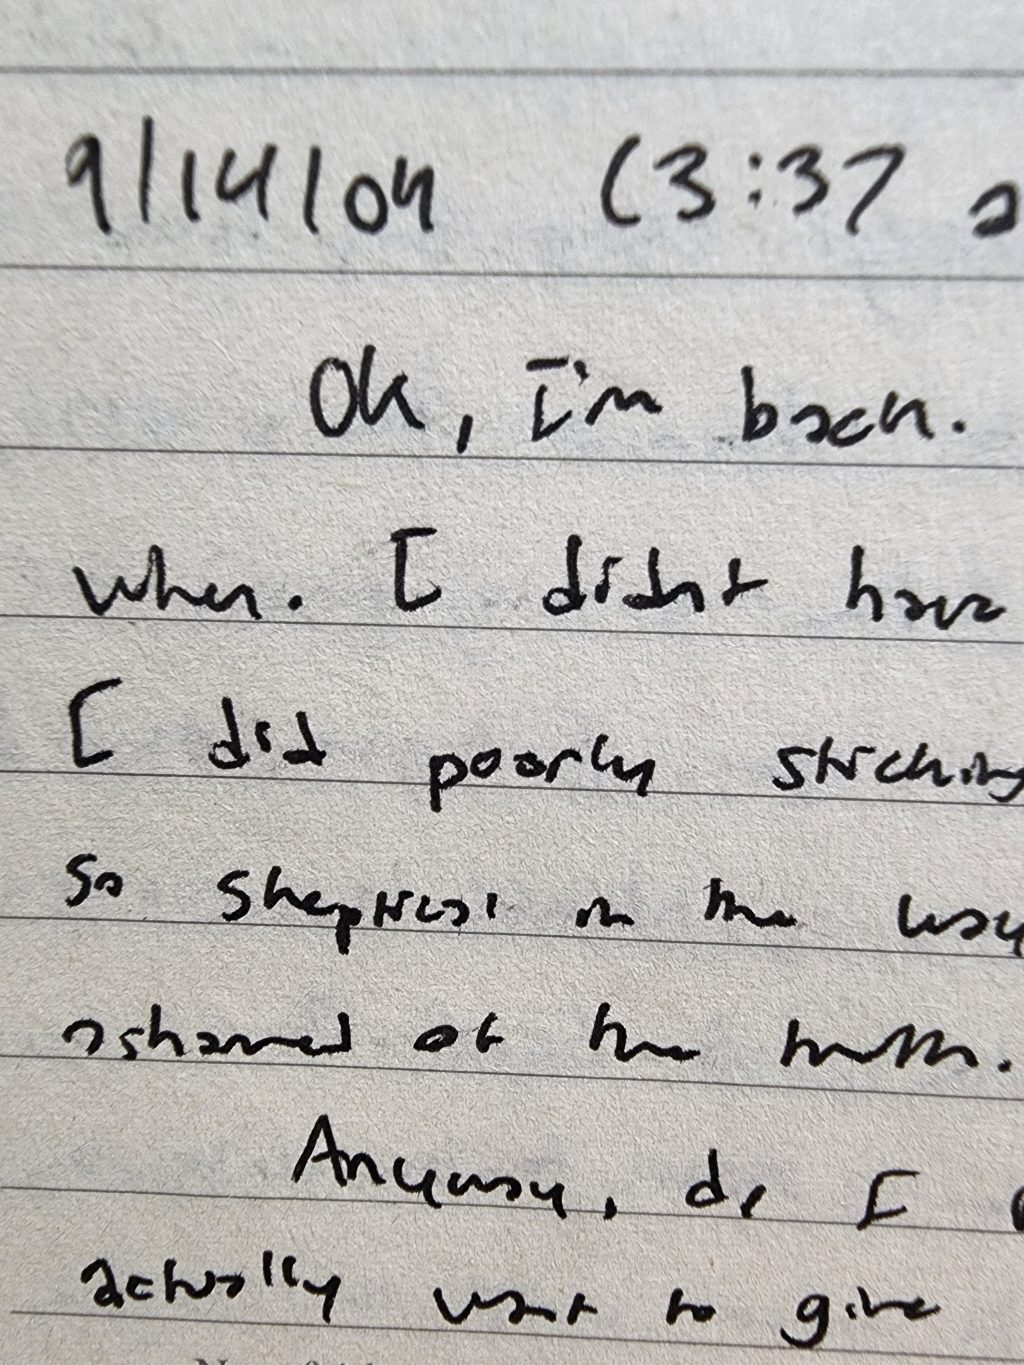 9/14/04 (3:37 a
Ok, I'm back.
when. I didn't have
I did poorly sticking
so skeptical in the way
ashamed of the truth.
Anyway, do I
actually want to give